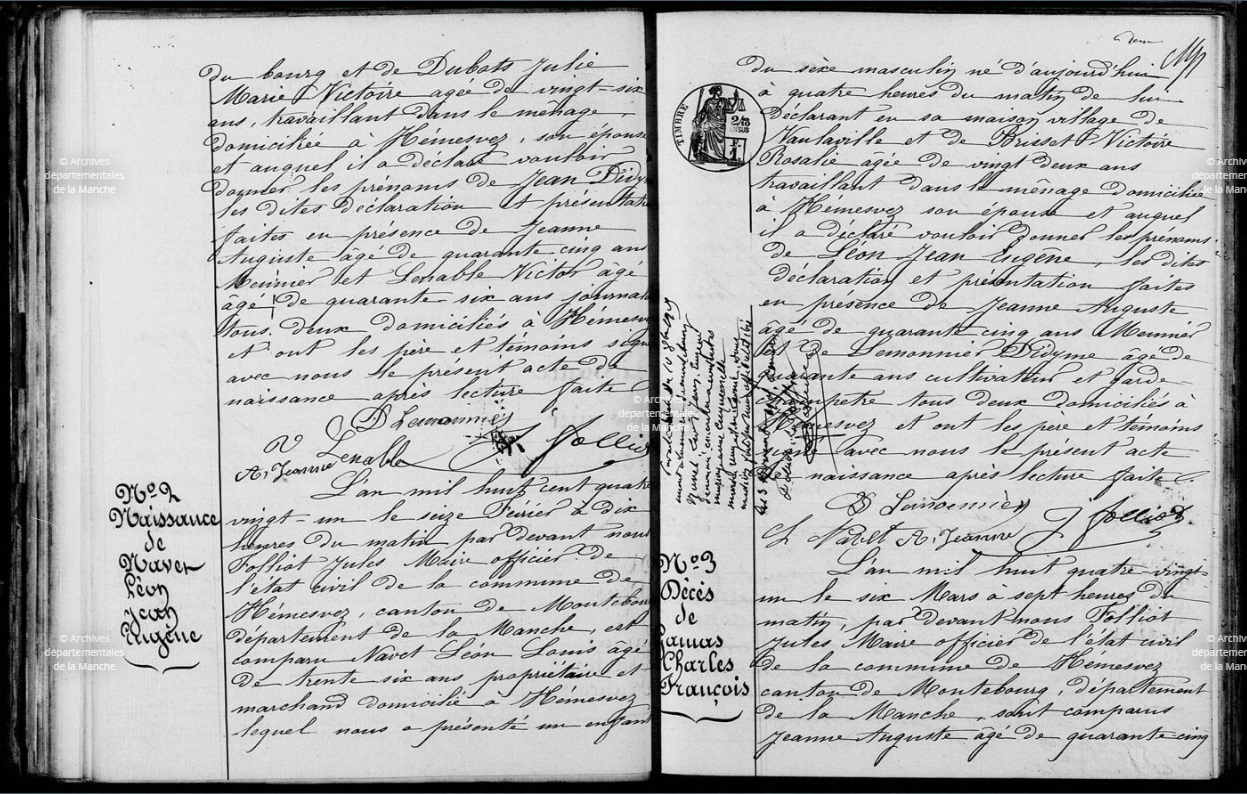 du bourg et de Dubots Julie
Marie Victoire agée de vingt-six
ans, travaillant dans le ménage,
domiciliée à Hémesvez, son épouse
et auquel il a déclaré vouloir
donner les prénoms de Jean Didym
les dites déclaration et présentation
faites en présence de Jeanne
Auguste âgé de quarante cinq ans
Meunier et Lenable Victor âgé
âgé de quarante six ans journal
tous deux domiciliés à Hémesvez
et ont les père et témoins signé
avec nous le présent acte de
naissance après lecture faite
D Lemonnier
V Lenable
J Folliot
A. Jeanne
No 2
Naissance
de
Navet
Léon
Jean
Eugène
L'an mil huit cent quatre
vingt-un le seize Février à dix
heures du matin par devant nous
Folliot Jules Maire officier de
l'état civil de la commune de
Hémesvez, canton de Montebourg
département de la Manche, est
comparu Navet Léon Louis âgé
de trente six ans propriétaire et
marchand domicilié à Hémesvez
lequel nous a présenté un enfant
deux
TIMBRE
du sexe masculin né d'aujourd'hui
à quatre heures du matin de lui
Déclarant en sa maison village de
Vaulaville et de Brisset Victoire
Rosalie agée de vingt deux ans
travaillant dans le ménage domiciliée
à Hémesvez son épouse et auquel
il a déclaré vouloir donner les prénoms
de Léon Jean Eugène, les dites
déclaration et présentation faites
en présence de Jeanne Auguste
âgé de quarante cinq ans Meunier
et de Lemonnier Didyme âgé de
quarante ans cultivateur et garde
champetre tous deux domiciliés à
Hémesvez et ont les pere et témoins
signé avec nous le présent acte
de naissance après lecture faite
D Lemonnier
J Folliot
L Navet A. Jeanne
No 3
Décès
de
Lamas
Charles
François
L'an mil huit quatre vingt-
un le six Mars à sept heures du
matin, par devant nous Folliot
Jules Maire officier de l'état civil
de la commune de Hémesvez
canton de Montebourg, département
de la Manche, sont comparus
Jeanne Auguste agé de quarante cinq
© Archives
départementales
de la Manche
© Archives
départementales
de la Manche
© Archives
départementales
de la Manche